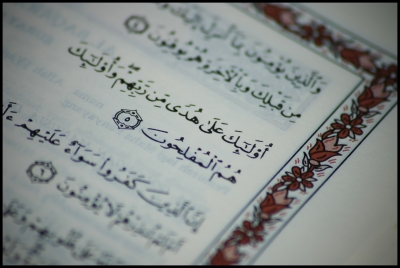 وَالَّذِينَ يُؤْمِنُونَ بِمَا أُنْزِلَ
مِنْ قَبْلِكَ وَبِالْآخِرَةِ هُمْ يُوقِنُونَ ٤
أُولَٰئِكَ عَلَىٰ هُدًى مِنْ رَبِّهِمْ وَأُولَٰئِكَ
هُمُ الْمُفْلِحُونَ ٥
إِنَّ الَّذِينَ كَفَرُوا سَوَاءٌ عَلَيْهِمْ ءَأَ
لَا يُؤْمِنُونَ ٦